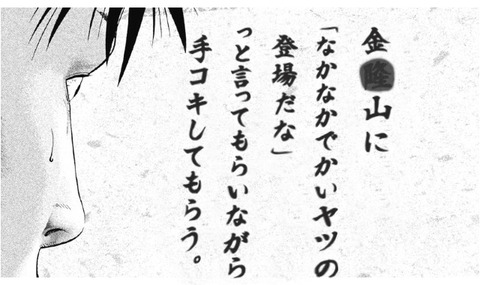 金隆山に
「なかなかでかいヤツの
登場だな」
っと言ってもらいながら
手コキしてもらう。